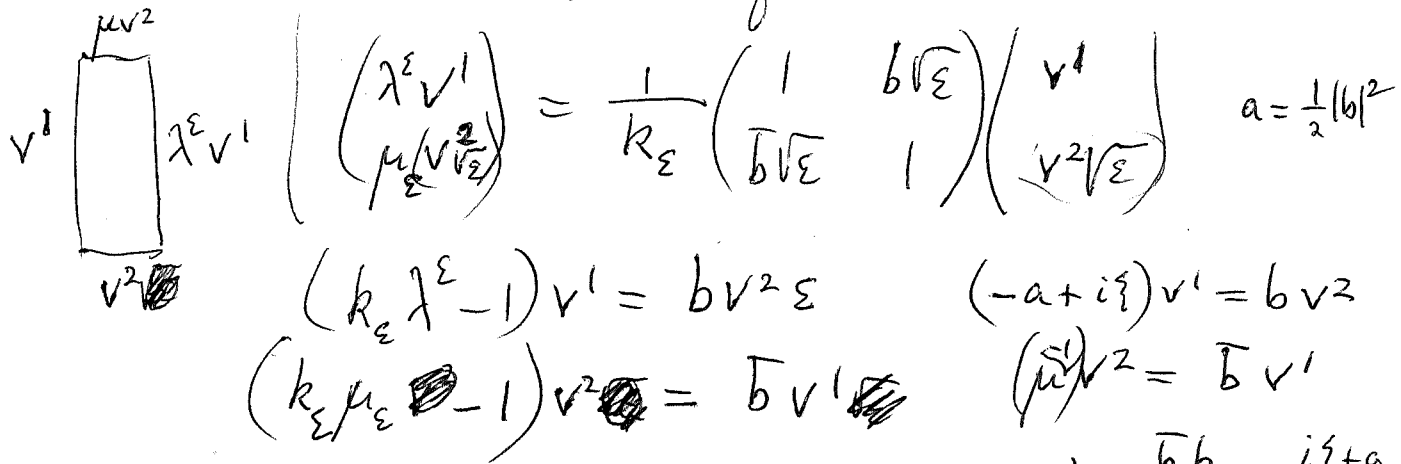 μv²
v¹ λ^ε v¹
v²
( λ^ε v¹ ; μ_ε(v²√ε) ) = 1/k_ε ( 1 b√ε ; b̄√ε 1 ) ( v¹ ; v²√ε ) a = ½|b|²
(k_ε λ^ε − 1) v¹ = b v² ε (−a + iξ) v¹ = b v²
(k_ε μ_ε − 1) v² = b̄ v¹ (μ−1) v² = b̄ v¹
b̄b iξ+a